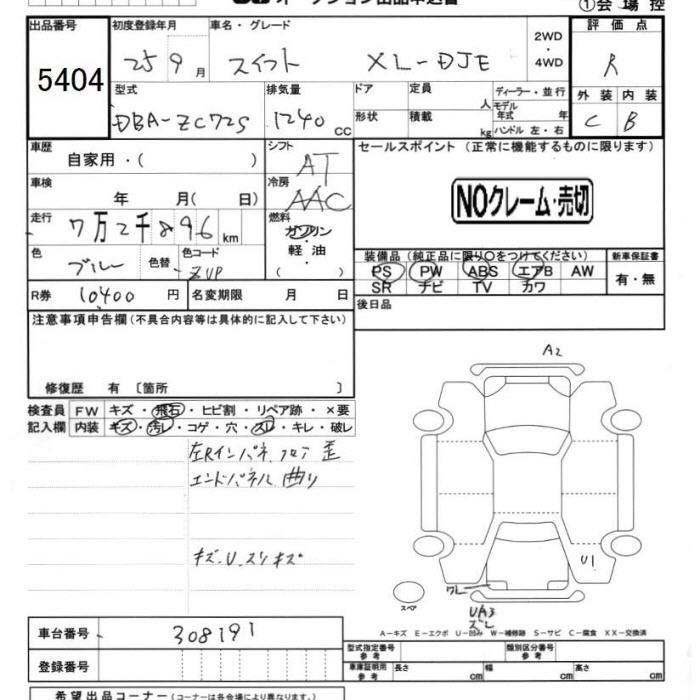 オークション出品申込書
①会場控
出品番号 初度登録年月 車名・グレード 評価点
5404 25 9月 スイフト XL-DJE 2WD・4WD R
型式 排気量 ドア 定員 人 ディーラー・並行 外装 内装
DBA-ZC72S 1240 CC 形状 積載 kg モデル年式 年 ハンドル 左・右 C B
車歴 自家用・( ) シフト AT セールスポイント (正常に機能するものに限ります)
車検 年 月( 日) 冷房 AAC NOクレーム・売切
走行 7万2千896km 燃料 ガソリン
色 ブルー 色替 色コード ZUP 軽油 ( )
装備品 (純正品に限り○をつけてください) 新車保証書
PS PW ABS エアB AW 有・無
SR ナビ TV カワ
R券 10400 円 名変期限 月 日 後日品
注意事項申告欄 (不具合内容等は具体的に記入して下さい)
修復歴 有 〔箇所 〕
検査員 FW キズ・飛石・ヒビ割・リペア跡・×要
記入欄 内装 キズ・汚レ・コゲ・穴・スレ・キレ・破レ
左Rインパネ、フロア歪
エンドパネル 曲り
キズ、U、スリキズ
A2
U1
ワレ
UA3
ズレ
スペア
A-キズ E-エクボ U-凹み W-補修跡 S-サビ C-腐食 XX-交換済
車台番号 308191
登録番号
型式指定番号 参考 類別区分番号 参考
車庫証明用 参考 長さ cm 幅 cm 高さ cm
希望出品コーナー (コーナーは各会場により異なります。)